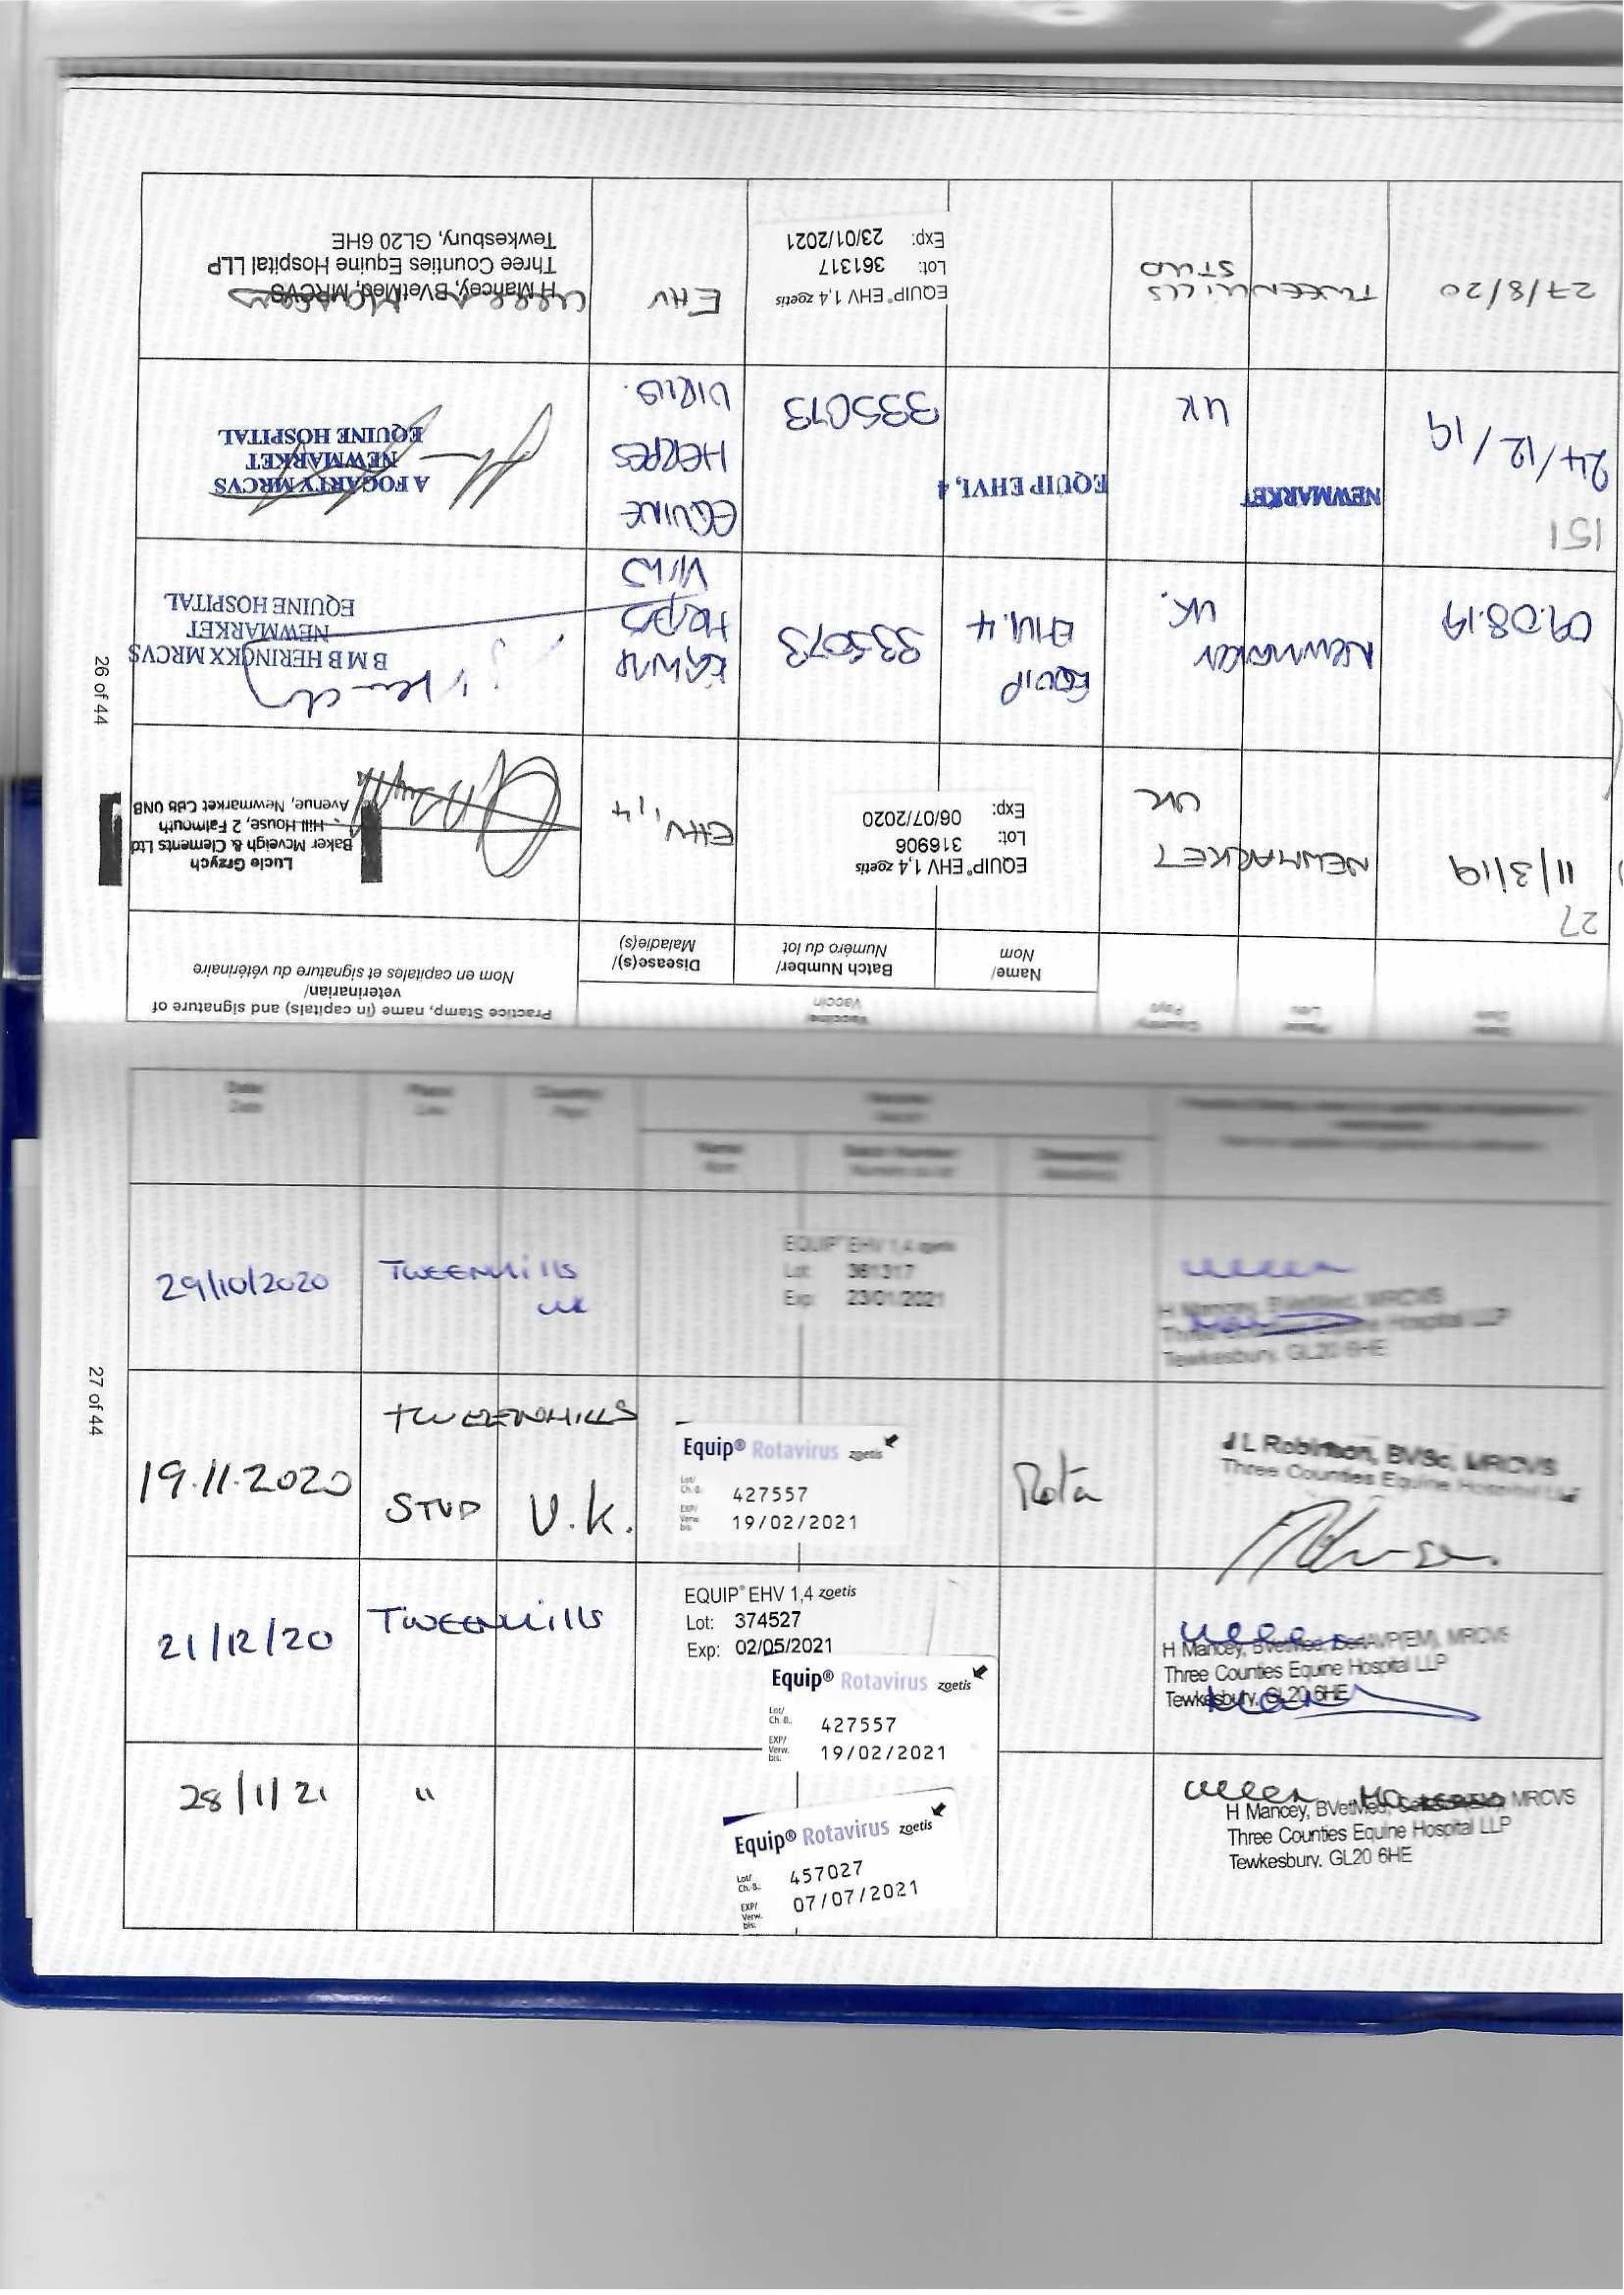 26 of 44
Date
Date
Place
Lieu
Country
Pays
Vaccine
Vaccin
Name/
Nom
Batch Number/
Numéro du lot
Disease(s)/
Maladie(s)
Practice Stamp, name (in capitals) and signature of
veterinarian/
Nom en capitales et signature du vétérinaire
27
11/3/19
NEWMARKET
UK
EQUIP® EHV 1,4 zoetis
Lot: 316906
Exp: 06/07/2020
EHV 1,4
Lucie Grzych
Baker Mcveigh & Clements Ltd
Hill House, 2 Falmouth
Avenue, Newmarket CB8 0NB
09.08.19
Newmarket
UK.
EQUIP
EHV1.4
335073
Herpes
Virus
B M B HERINCKX MRCVS
NEWMARKET
EQUINE HOSPITAL
151
24/12/19
NEWMARKET
UK
EQUIP EHV1, 4
335073
EQUINE
HERPES
VIRUS.
A FOGARTY MRCVS
NEWMARKET
EQUINE HOSPITAL
27/8/20
TWEENHILLS
STUD
EQUIP® EHV 1,4 zoetis
Lot: 361317
Exp: 23/01/2021
EHV
H Mancey, BVetMed, MRCVS
Three Counties Equine Hospital LLP
Tewkesbury, GL20 6HE
27 of 44
Date
Date
Place
Lieu
Country
Pays
Vaccine
Vaccin
Name
Nom
Batch Number
Numéro du lot
Disease(s)
Maladie(s)
29/10/2020
TWEENHILLS
UK
EQUIP® EHV 1,4 zoetis
Lot: 361317
Exp: 23/01/2021
H Mancey, BVetMed, MRCVS
Three Counties Equine Hospital LLP
Tewkesbury, GL20 6HE
19.11.2020
TWEENHILLS
STUD
U.K.
Equip® Rotavirus zoetis
Lot/
Ch.-B.
427557
EXP/
Verw.
bis:
19/02/2021
Rota
J L Robinson, BVSc, MRCVS
Three Counties Equine Hospital LLP
21/12/20
TWEENHILLS
EQUIP® EHV 1,4 zoetis
Lot: 374527
Exp: 02/05/2021
Equip® Rotavirus zoetis
Lot/
Ch.-B.
427557
EXP/
Verw.
bis:
19/02/2021
H Mancey, BVetMed, CertAVP(EM), MRCVS
Three Counties Equine Hospital LLP
Tewkesbury, GL20 6HE
28/1/21
"
Equip® Rotavirus zoetis
Lot/
Ch.-B.
457027
EXP/
Verw.
bis:
07/07/2021
H Mancey, BVetMed, MRCVS
Three Counties Equine Hospital LLP
Tewkesbury. GL20 6HE